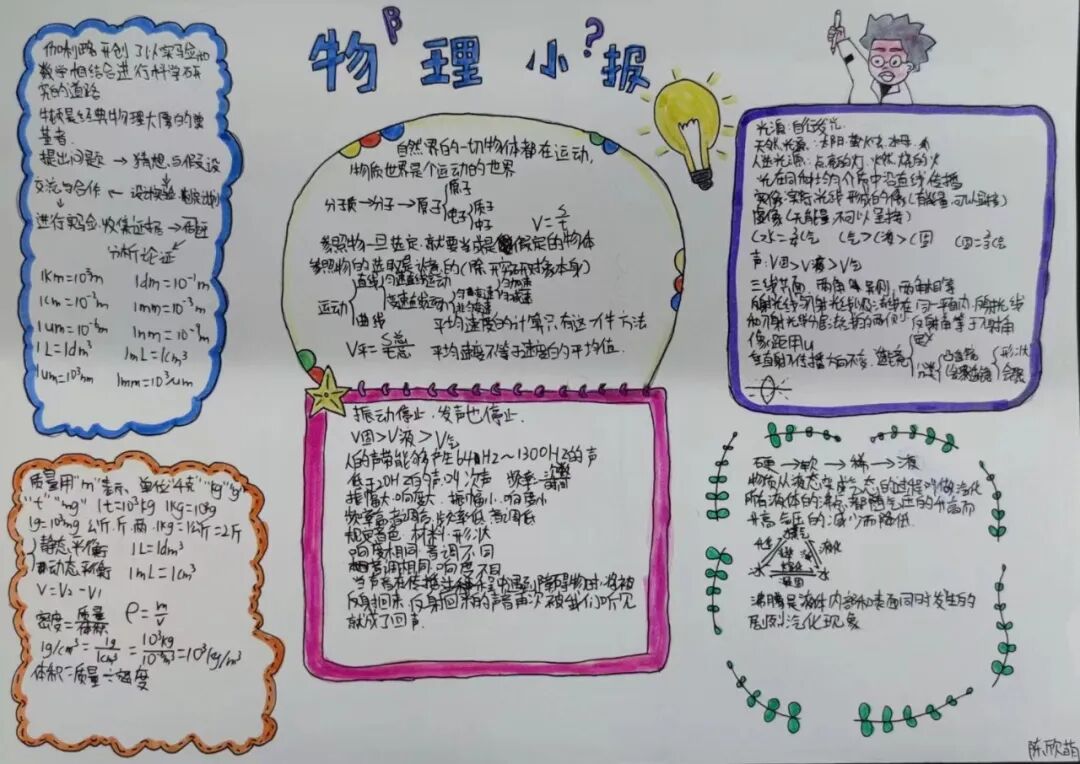 物理小报
β
?
伽利略开创了以实验和
数学相结合进行科学研
究的道路
牛顿是经典物理大厦的奠
基者
提出问题 → 猜想与假设
交流与合作 ← 设计实验
进行实验收集证据 →
分析论证
1km=10³m 1dm=10⁻¹m
1cm=10⁻²m 1mm=10⁻³m
1um=10⁻⁶m 1nm=10⁻⁹m
1L=1dm³ 1mL=1cm³
1um=10³nm 1mm=10³um
自然界的一切物体都在运动,
物质世界是个运动的世界
分子质→分子→原子{原子 电子 质子 中子
V=S/t
参照物一旦选定,就要当成是假定的物体
参照物的选取是任意的(除研究对象本身)
运动{直线{匀速直线运动 变速直线运动
曲线
平均速度的计算只有这一件方法
V平=S总/t总 平均速度不等于速度的平均值.
光源:自行发光
天然光源:太阳 萤火虫 水母
人造光源:点亮的灯 燃烧的火
光在同种均匀介质中沿直线传播
实像:实际光线形成的像(有能量,可以呈接)
虚像(无能量不可以呈接)
C水=¾C气 C气>C液>C固 C固=⅔C气
声:V固>V液>V气
三线共面,两角分居,两角相等
反射光线与入射光线及法线在同一平面内,反射光线
和入射光线分居法线的两侧,反射角等于入射角
像距用u
垂直射入传播方向不变,透镜{定义 分类{凸透镜 凹透镜{形状 会聚
质量用"m"表示,单位"千克""kg""g"
"t""mg" 1t=10³kg 1kg=10³g
1g=10³mg 公斤.斤.两 1kg=1公斤=2斤
静态平衡 1L=1dm³
动态平衡 1mL=1cm³
V=V₂-V₁
密度=质量/体积 ρ=m/v
1g/cm³=1g/1cm³=10⁻³kg/10⁻⁶m³=10³kg/m³
体积=质量÷密度
振动停止,发声也停止.
V固>V液>V气
人的声带能够产生64HZ~1300HZ的声
低于20HZ的声叫次声 频率=次数/时间
振幅大,响度大,振幅小,响度小
频率高音调高,频率低,音调低
规定音色:材料、形状
响度相同,音调不同
音调相同,响度不同
当声音在传播过程中遇到障碍物时,将被
反射回来,反射回来的声音再次被我们听见
就成了回声.
硬→软→稀→液
物质从液态变为气态的过程叫做汽化
所有液体的沸点都随气压的升高而
升高,气压的减少而降低.
汽
升华 液化
冰 水
凝固
沸腾是液体内部和表面同时发生的
剧烈汽化现象
陈欣萌